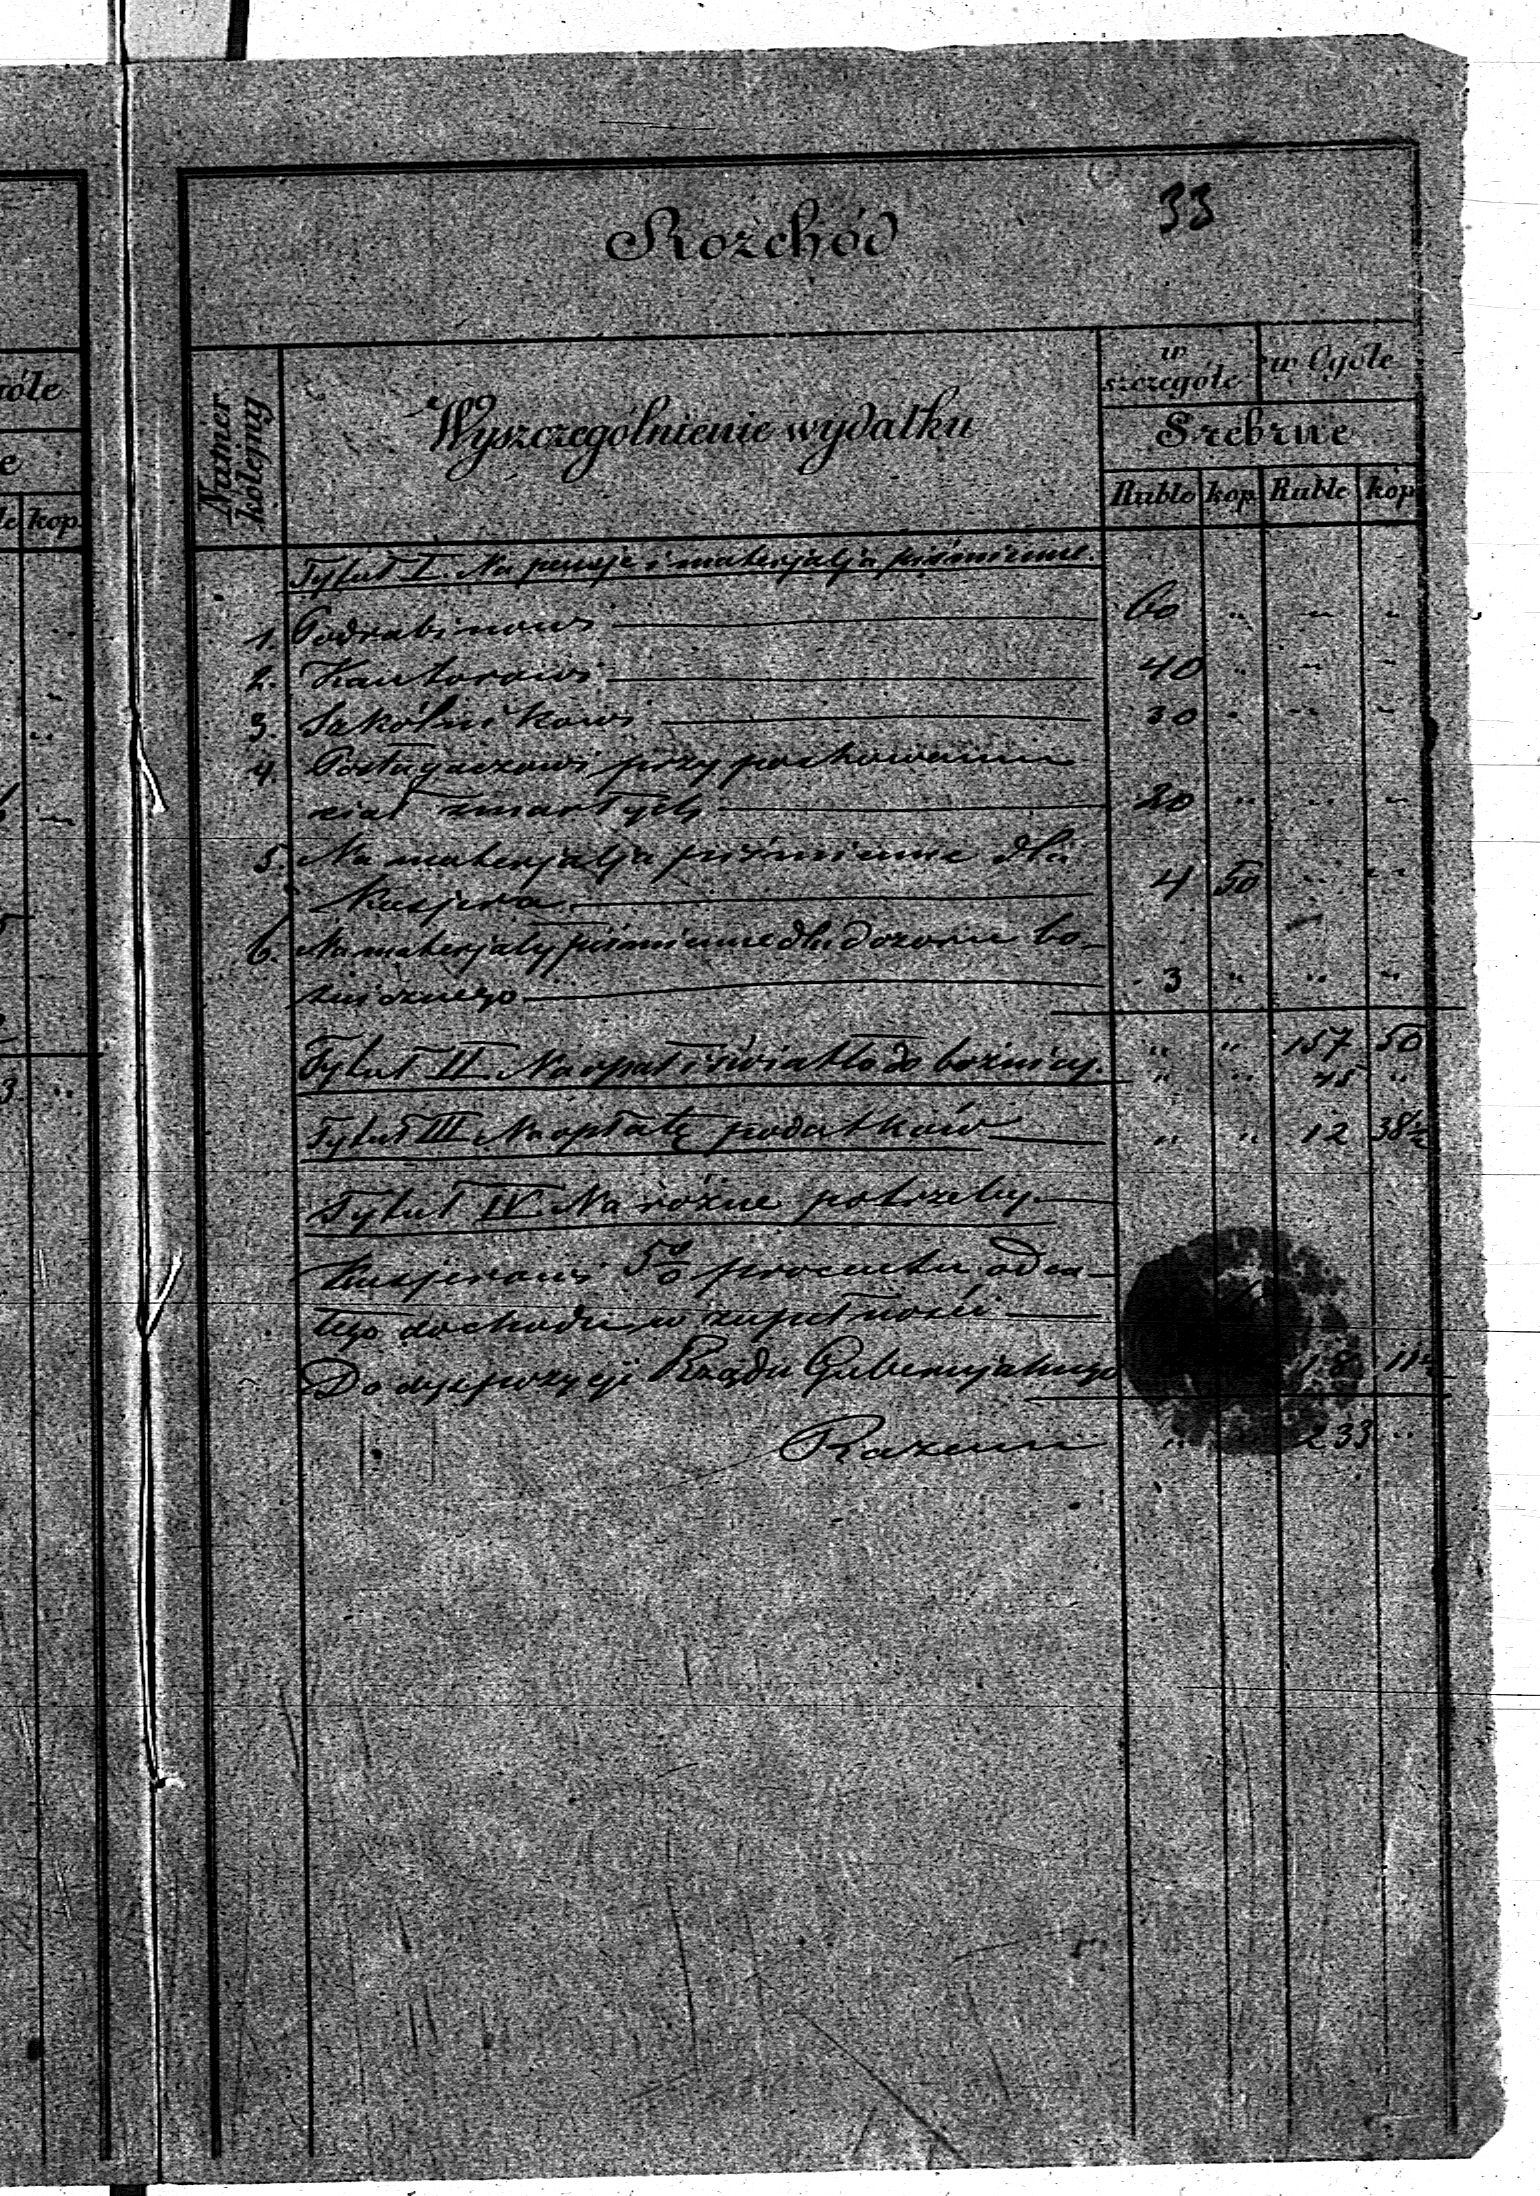 33
Rozchód
Numer kolejny
Wyszczególnienie wydatku
w szczególe
w Ogóle
Srebrne
Ruble kop. Ruble kop.
Tytuł I. Na pensje i materjalja piśmienne.
1. Podrabinowi 60 " " "
2. Kantorowi 40 " " "
3. Szkólnikowi 30 " " "
4. Posługaczowi przy pochowaniu
ciał zmarłych 20 " " "
5. Na materjalja piśmienne dla
Kasjera 4 50 " "
6. Na materjały piśmienne dla dozoru bo-
żnicznego 3 " " "
" " 157 50
Tytuł II. Na opał i światło do bożnicy. " " 45 "
Tytuł III. Na opłatę podatków " " 12 38½
Tytuł IV. Na różne potrzeby.
Kasjerowi 5% procentu od ca-
łego dochodu w zupełności
Do dyspozycji Rządu Gubernjalnego 18 11½
Razem " 233 "
óle
e
le kop.
3 "